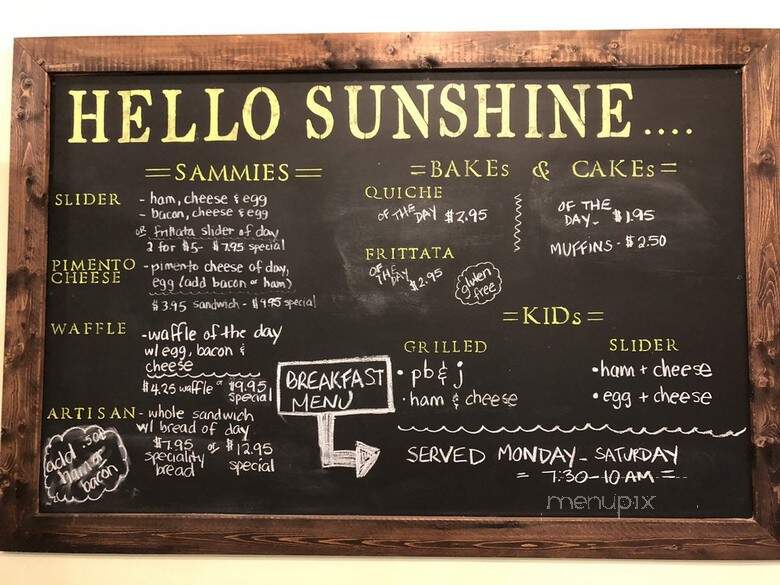 HELLO SUNSHINE....
=SAMMIES=
SLIDER - ham, cheese & egg
- bacon, cheese & egg
or frittata slider of day
2 for $5- $7.95 special
PIMENTO CHEESE - pimento cheese of day,
egg (add bacon or ham)
$3.95 sandwich - $9.95 special
WAFFLE - waffle of the day
w/ egg, bacon &
cheese
$4.25 waffle or $9.95 special
ARTISAN - whole sandwich
w/ bread of day
$7.95 or $12.95
speciality bread
special
add .50¢
ham or
bacon
=BAKEs & CAKEs=
QUICHE
OF THE DAY $2.95
FRITTATA
OF THE DAY $2.95
gluten
free
OF THE
DAY- $1.95
MUFFINS - $2.50
=KIDs=
GRILLED
• pb & j
• ham & cheese
SLIDER
• ham + cheese
• egg + cheese
BREAKFAST
MENU
SERVED MONDAY - SATURDAY
= 7:30-10 AM =
menupix